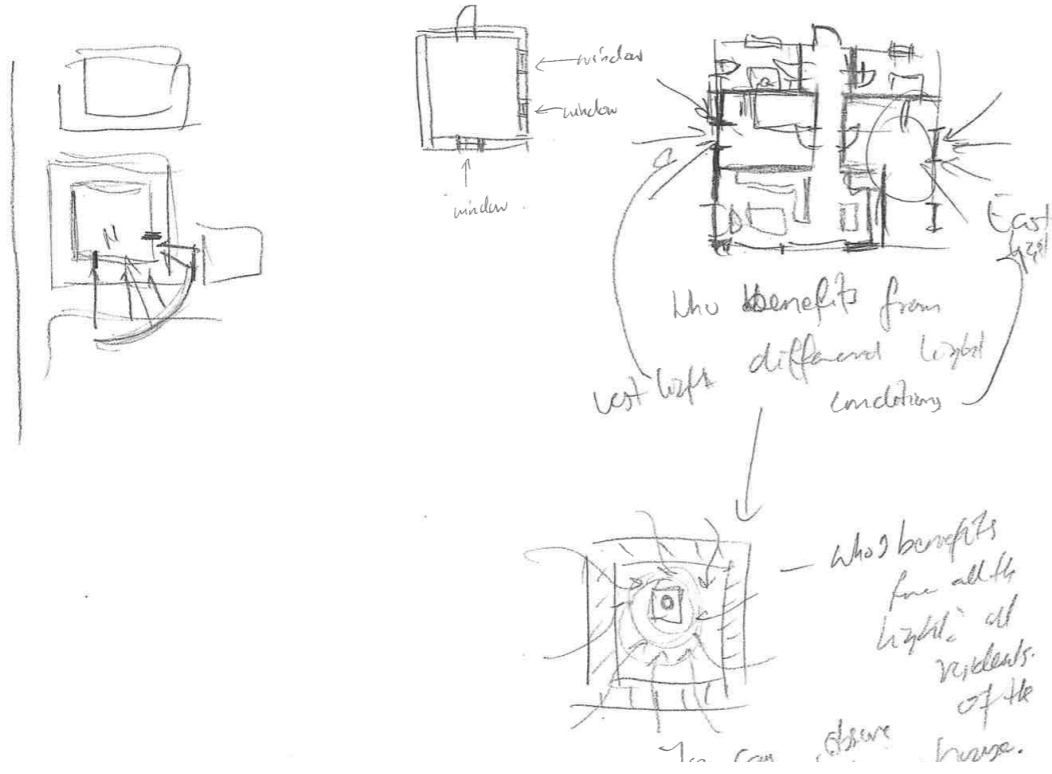 window
window
window
East
light
Who benefits from
different light
conditions
West light
- Who benefits
all the
light; all
residents
of the
house.
You can observe